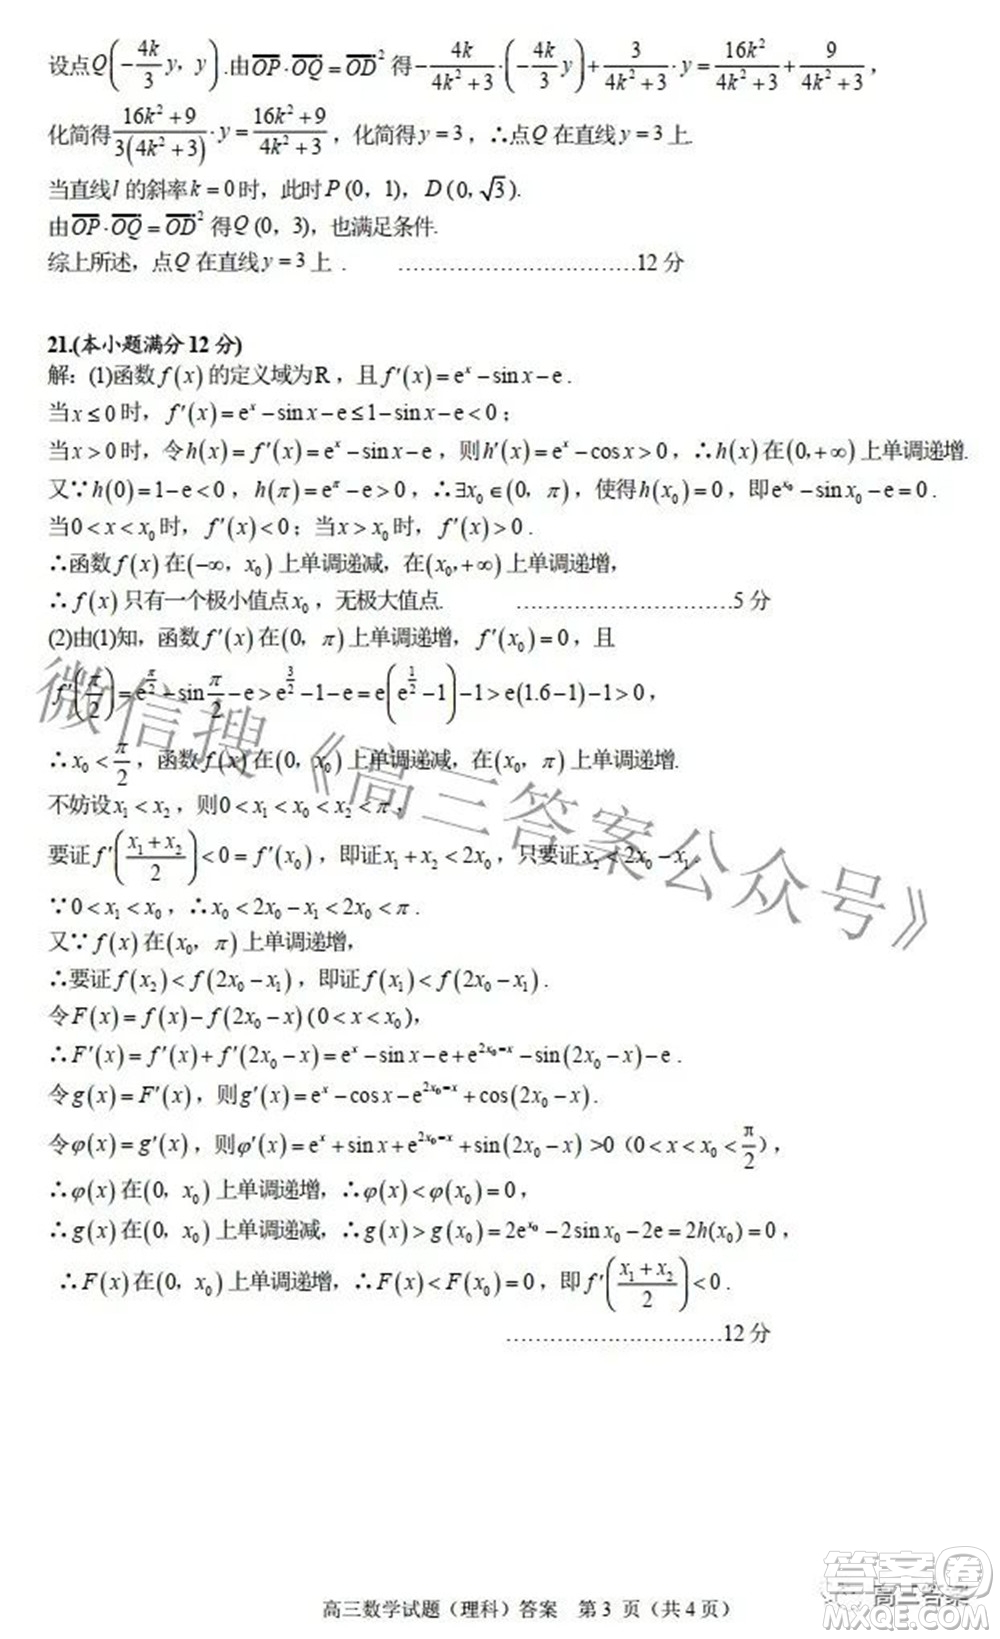 设点Q(-4k/3 y，y).由OP·OQ=OD²得-4k/(4k²+3)·(-4k/3 y)+3/(4k²+3)·y=16k²/(4k²+3)+9/(4k²+3)，
化简得(16k²+9)/(3(4k²+3))·y=(16k²+9)/(4k²+3)，化简得y=3，∴点Q在直线y=3上.
当直线l的斜率k=0时，此时P(0，1)，D(0，√3).
由OP·OQ=OD²得Q(0，3)，也满足条件.
综上所述，点Q在直线y=3上． ……………………………12分
21.(本小题满分12分)
解：(1)函数f(x)的定义域为R，且f′(x)=eˣ-sin x-e．
当x≤0时，f′(x)=eˣ-sin x-e≤1-sin x-e<0；
当x>0时，令h(x)=f′(x)=eˣ-sin x-e，则h′(x)=eˣ-cos x>0，∴h(x)在(0,+∞)上单调递增.
又∵h(0)=1-e<0，h(π)=e^π-e>0，∴∃x₀∈(0，π)，使得h(x₀)=0，即e^x₀-sin x₀-e=0．
当0<x<x₀时，f′(x)<0；当x>x₀时，f′(x)>0．
∴函数f(x)在(-∞，x₀)上单调递减，在(x₀,+∞)上单调递增，
∴f(x)只有一个极小值点x₀，无极大值点. …………………………5分
(2)由(1)知，函数f′(x)在(0，π)上单调递增，f′(x₀)=0，且
f′(π/2)=e^(π/2)-sin π/2-e>e^(3/2)-1-e=e(e^(1/2)-1)-1>e(1.6-1)-1>0，
∴x₀<π/2，函数f(x)在(0，x₀)上单调递减，在(x₀，π)上单调递增.
不妨设x₁<x₂，则0<x₁<x₀<x₂<π，
要证f′((x₁+x₂)/2)<0=f′(x₀)，即证x₁+x₂<2x₀，只要证x₂<2x₀-x₁．
∵0<x₁<x₀，∴x₀<2x₀-x₁<2x₀<π．
又∵f(x)在(x₀，π)上单调递增，
∴要证f(x₂)<f(2x₀-x₁)，即证f(x₁)<f(2x₀-x₁)．
令F(x)=f(x)-f(2x₀-x)(0<x<x₀)，
∴F′(x)=f′(x)+f′(2x₀-x)=eˣ-sin x-e+e^(2x₀-x)-sin(2x₀-x)-e．
令g(x)=F′(x)，则g′(x)=eˣ-cos x-e^(2x₀-x)+cos(2x₀-x)．
令φ(x)=g′(x)，则φ′(x)=eˣ+sin x+e^(2x₀-x)+sin(2x₀-x)>0（0<x<x₀<π/2），
∴φ(x)在(0，x₀)上单调递增，∴φ(x)<φ(x₀)=0，
∴g(x)在(0，x₀)上单调递减，∴g(x)>g(x₀)=2e^x₀-2sin x₀-2e=2h(x₀)=0，
∴F(x)在(0，x₀)上单调递增，∴F(x)<F(x₀)=0，即f′((x₁+x₂)/2)<0．
…………………………12分
微信搜《高三答案公众号》
高三数学试题（理科）答案 第3页（共4页）
高三答案
答案卷
MXQE.COM